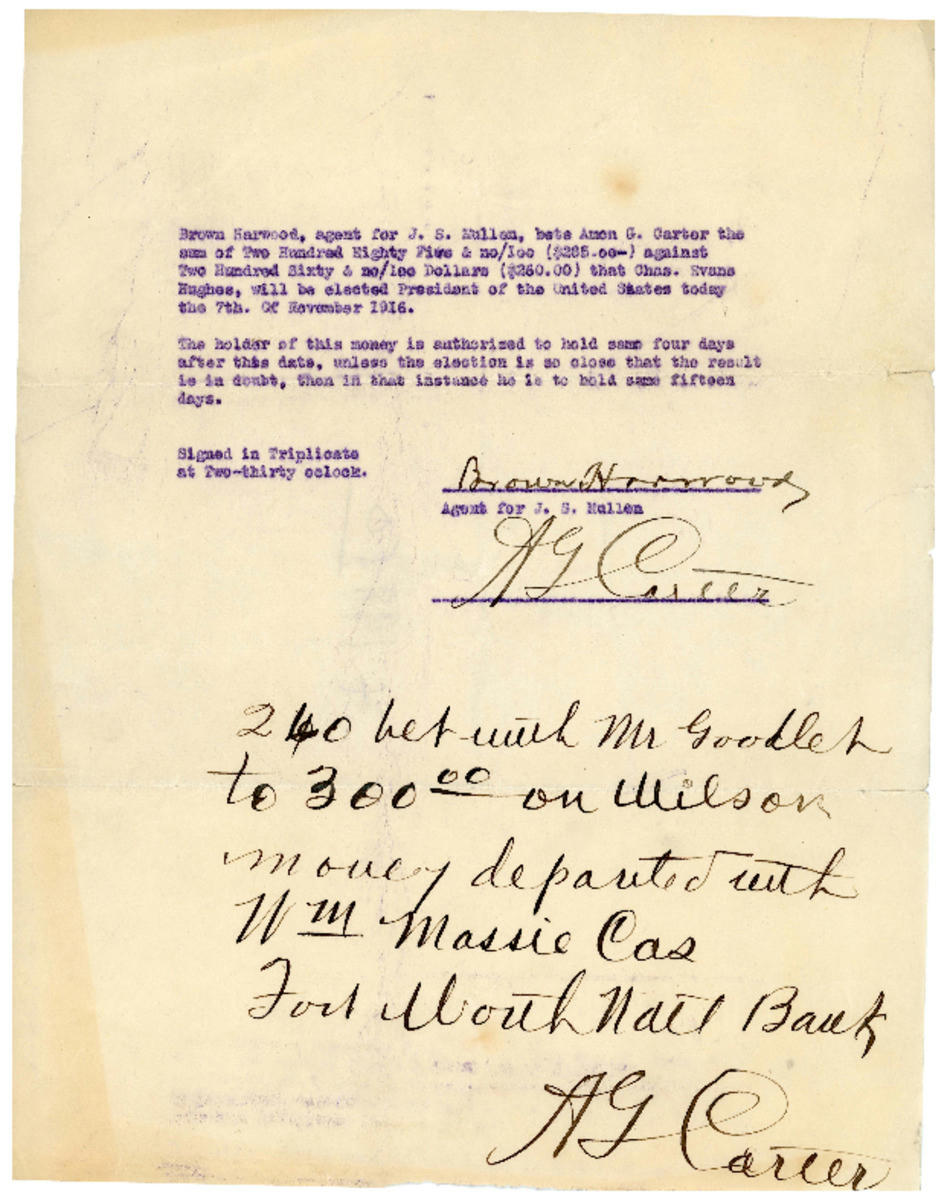 Brown Harwood, agent for J. S. Mullen, bets Amon G. Carter the
sum of Two Hundred Eighty Five & no/Ioo ($285.oo-) against
Two Hundred Sixty & no/Ioo Dollars ($260.00) that Chas. Evans
Hughes, will be elected President of the United States today
the 7th. Of November 1916.
The holder of this money is authorized to hold same four days
after this date, unless the election is so close that the result
is in doubt, then in that instance he is to hold same fifteen
days.
Signed in Triplicate
at Two-thirty oclock.
Brown Harwood
Agent for J. S. Mullen
A G Carter
240 bet with Mr Goodlet
to 300 00 on Wilson
money deposited with
Wm Massie Cas
Fort Worth Natl Bank
A G Carter